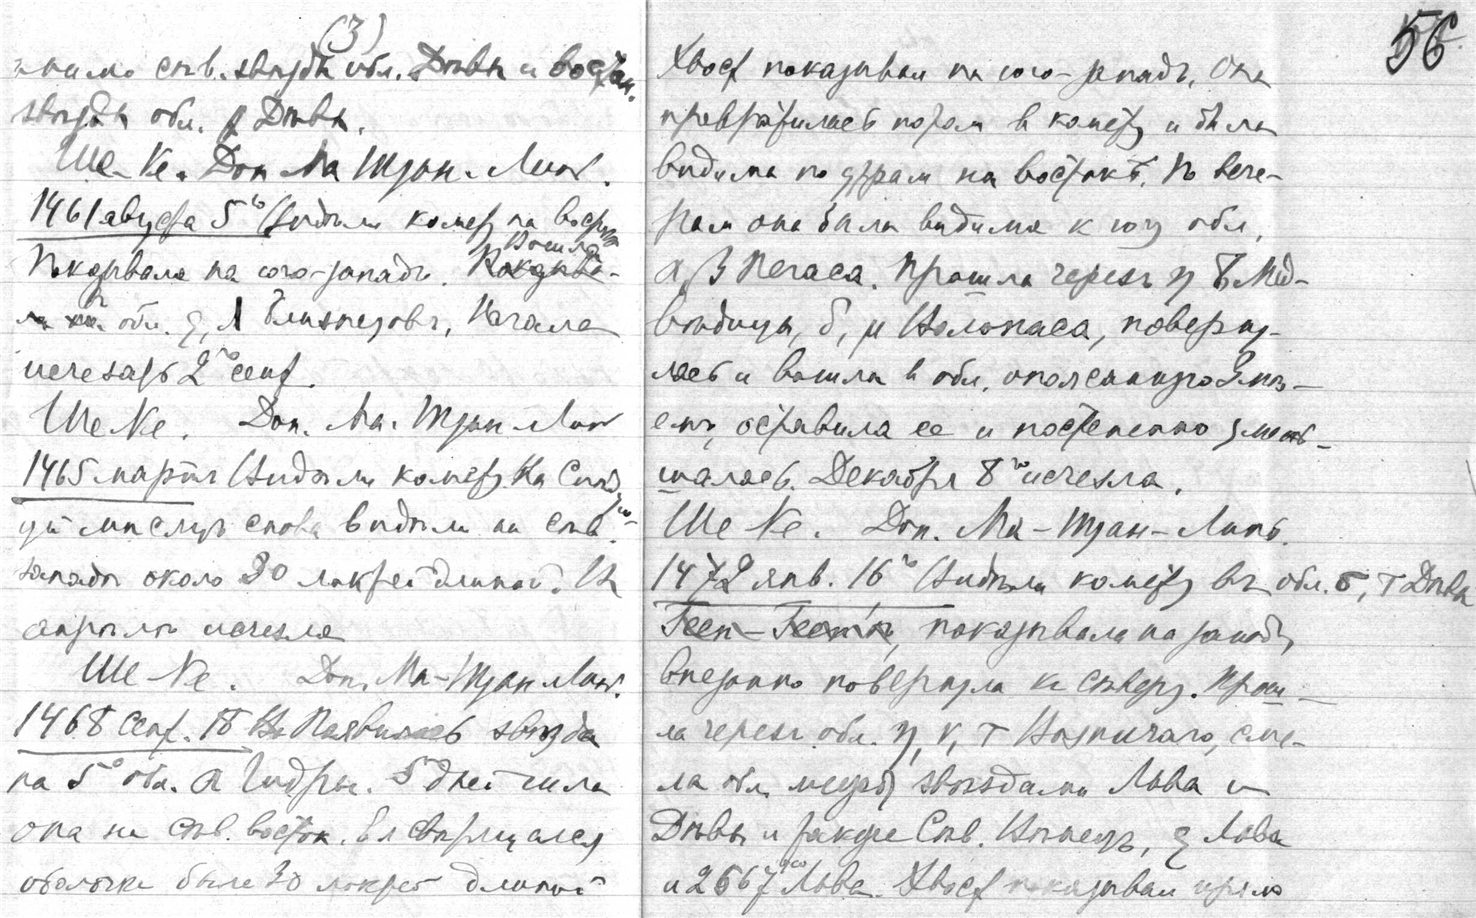 (3)
сѣв. звѣзды обл. Дѣвы и восточн.
звѣзды обл. β Дѣвы.
Ше-Ке. Доп. Ма Туан-Лин.
1461 августа 5го Видѣли комету на востокѣ
Показывала на юго-западъ. Вошла
въ обл. ξ, λ Близнецовъ, Начала
исчезать 2го сент.
Ше Ке. Доп. Ма. Туан Лин
1465 мартъ Видѣли комету На Слѣдую-
щій мѣсяцъ снова видѣли на сѣв.
западѣ около 30 локтей длиной. И
исчезла
Ше Ке. Доп. Ма-Туан Лин.
1468 Сент. 18 Появилась звѣзда
на 5о обл. α Гидры. 5 дней шла
она на сѣв. восток. Ея
оболочка была 30 локтей длиной
56
Хвост показывал на юго-западъ. Она
превратилась потом в комету и была
видима по утрам на востокѣ. По вече-
рам она была видима к югу обл.
α, β Пегаса. Прошла черезъ η Б. Мед-
вѣдицы, δ, μ Волопаса, поверну-
лась и вошла в обл.
оставила ее и постепенно умень-
шалась. Декабря 8го исчезла.
Ше Ке. Доп. Ма-Туан-Линъ.
1472 янв. 16го Видѣли комету въ обл. σ, τ Дѣвы
показывала на западъ,
внезапно повернула к сѣверу. Прош-
ла черезъ обл. η, ν, τ Возничаго, сме-
ла обл. между звѣздами Льва и
Дѣвы и также Сѣв. Вѣнецъ, ξ Льва
и 2667ую Льва. Хвост показывал прямо